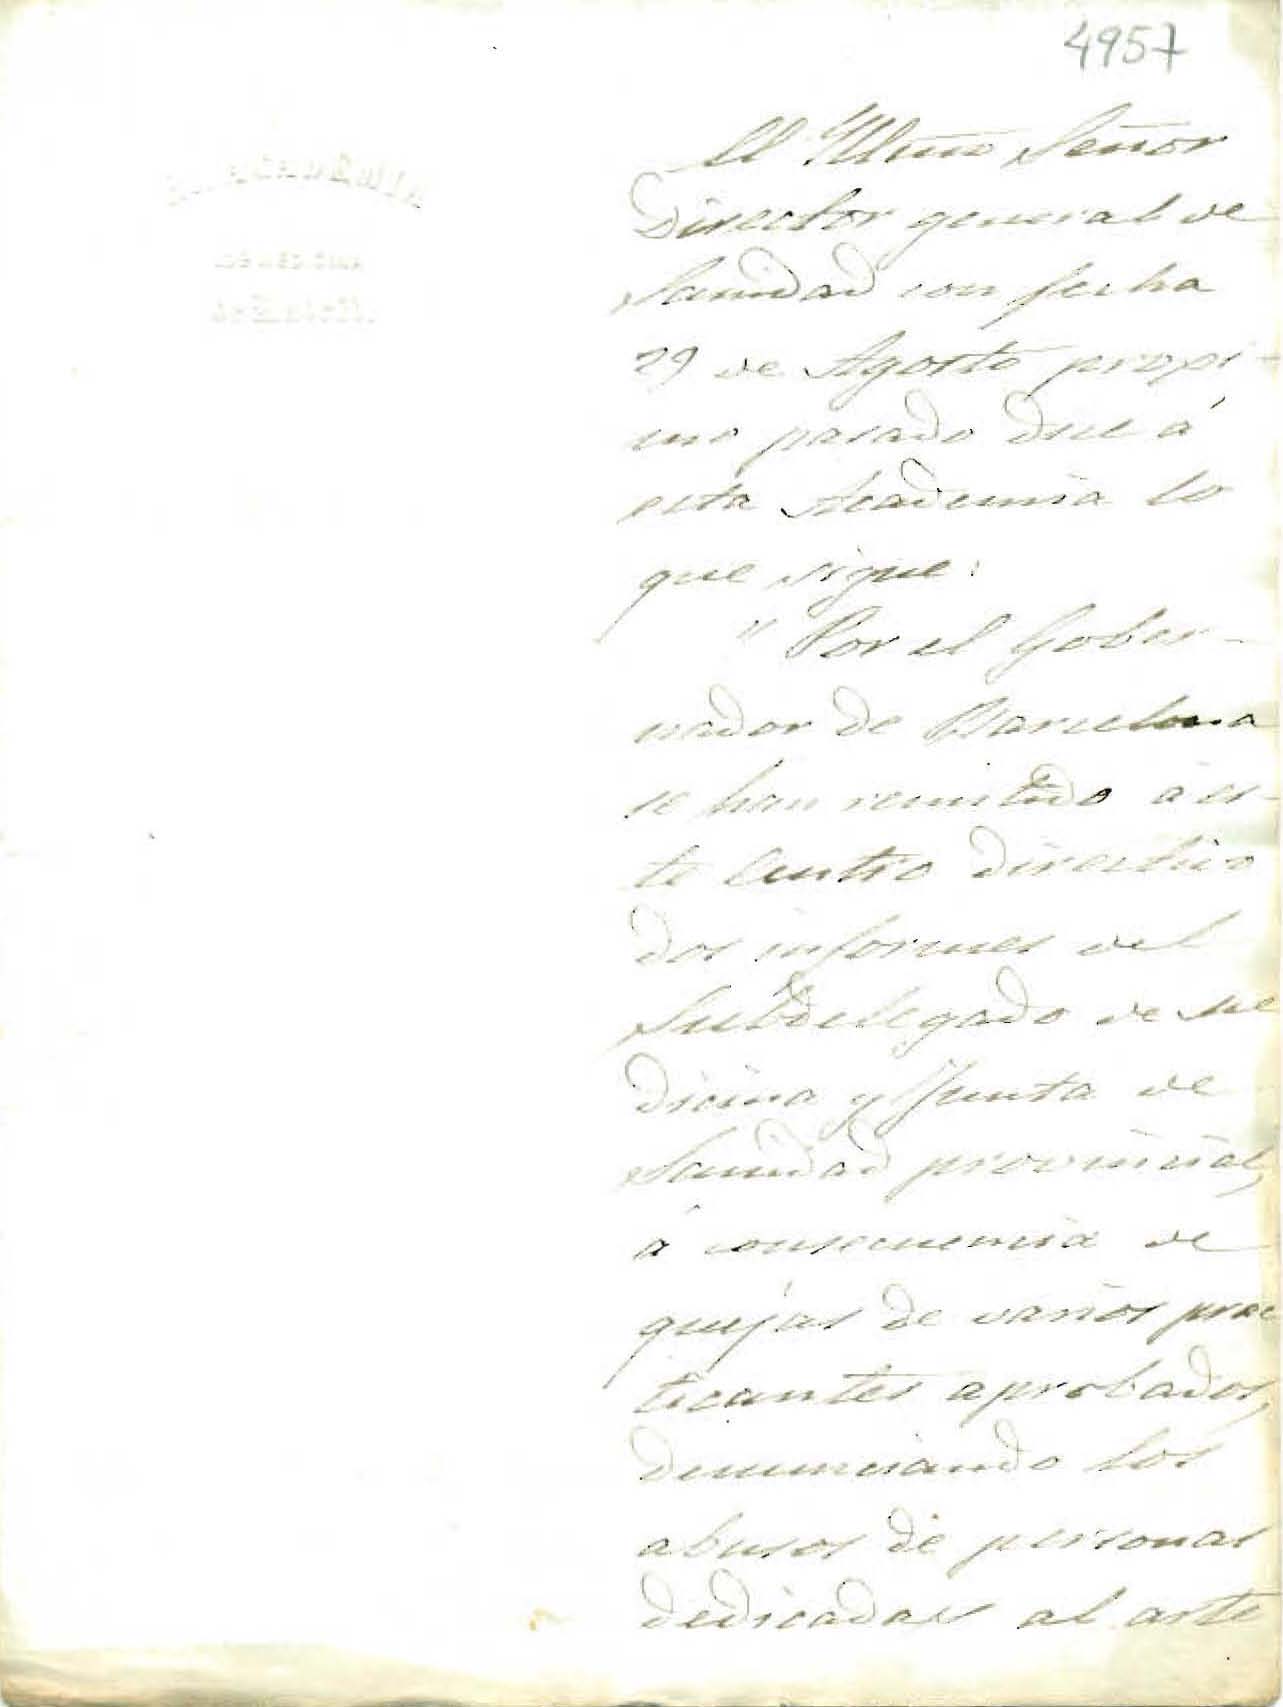 4957
El Yllmo Señor
Director general de
Sanidad con fecha
29 de Agosto próxi-
mo pasado dice á
esta Academia lo
que sigue:
"Por el Gober-
nador de Barcelona
se han remitido á es-
te Centro directivo
dos informes del
Subdelegado de me
dicina y Junta de
Sanidad provincial,
á consecuencia de
quejas de varios prac
ticantes aprobados,
denunciando los
abusos de personas
dedicadas al arte